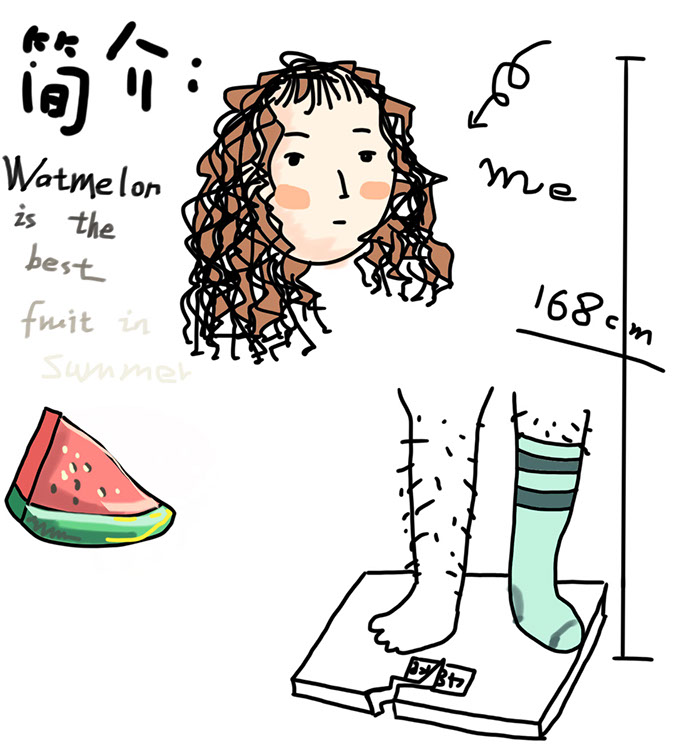 简介:
Watmelon
is the
best
fruit in
summer
me
168cm